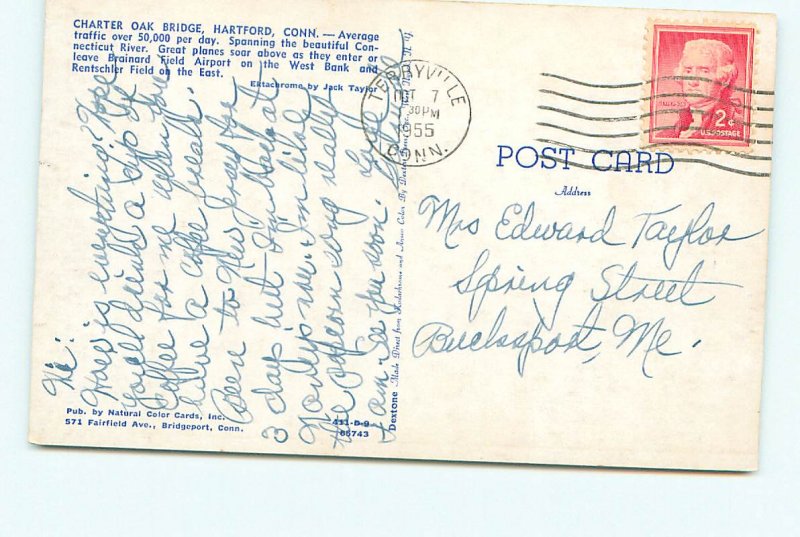 CHARTER OAK BRIDGE, HARTFORD, CONN. — Average
traffic over 50,000 per day. Spanning the beautiful Con-
necticut River. Great planes soar above as they enter or
leave Brainard Field Airport on the West Bank and
Rentschler Field on the East.
Ektachrome by Jack Taylor
Hi:
How is everything? Hope
you'll drink a cup of
coffee for me when you
have a coffee break.
Been to New Jersey for
3 days but I'm back at
now. I'm like
the popcorn song really
I am. See you soon. Love
Pub. by Natural Color Cards, Inc.
571 Fairfield Ave., Bridgeport, Conn.
411-D-9
66743
Dextone Made Direct from Kodachrome and Ansco Color By Dexter
TERRYVILLE
OCT 7
30 PM
1955
CONN.
2¢
U.S. POSTAGE
POST CARD
Address
Mrs Edward Taylor
Spring Street
Bucksport, Me.